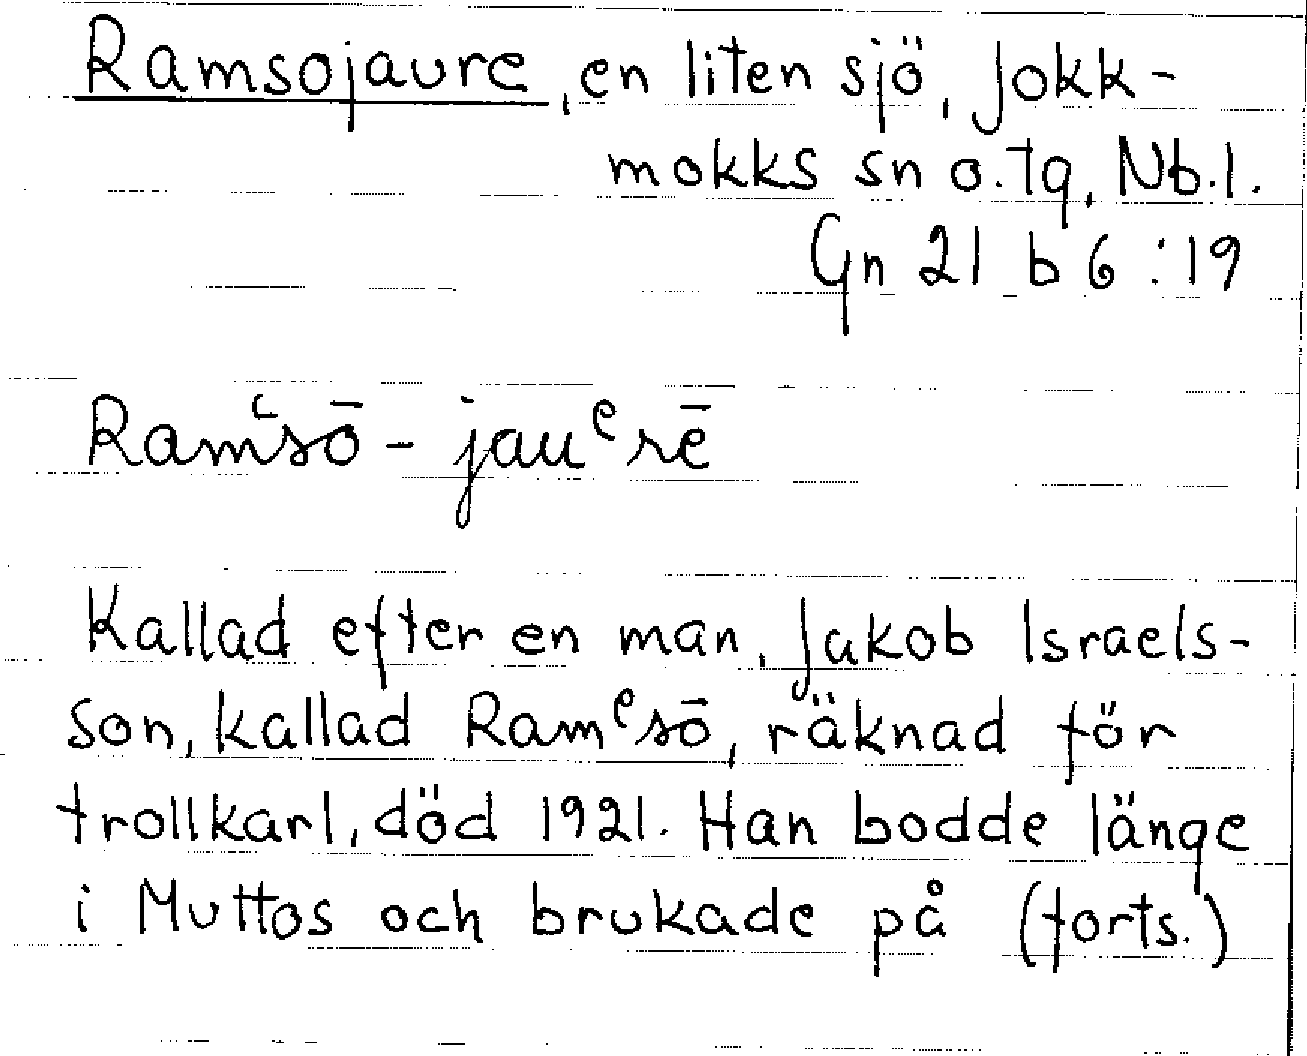 Ramsojaure, en liten sjö, Jokk-
mokks sn o. tg, Nb. l.
Gn 21 b 6 : 19
Ramᵉsō - jauᵉrē
Kallad efter en man, Jakob Israels-
son, kallad Ramᵉsō, räknad för
trollkarl, död 1921. Han bodde länge
i Muttos och brukade på (forts.)